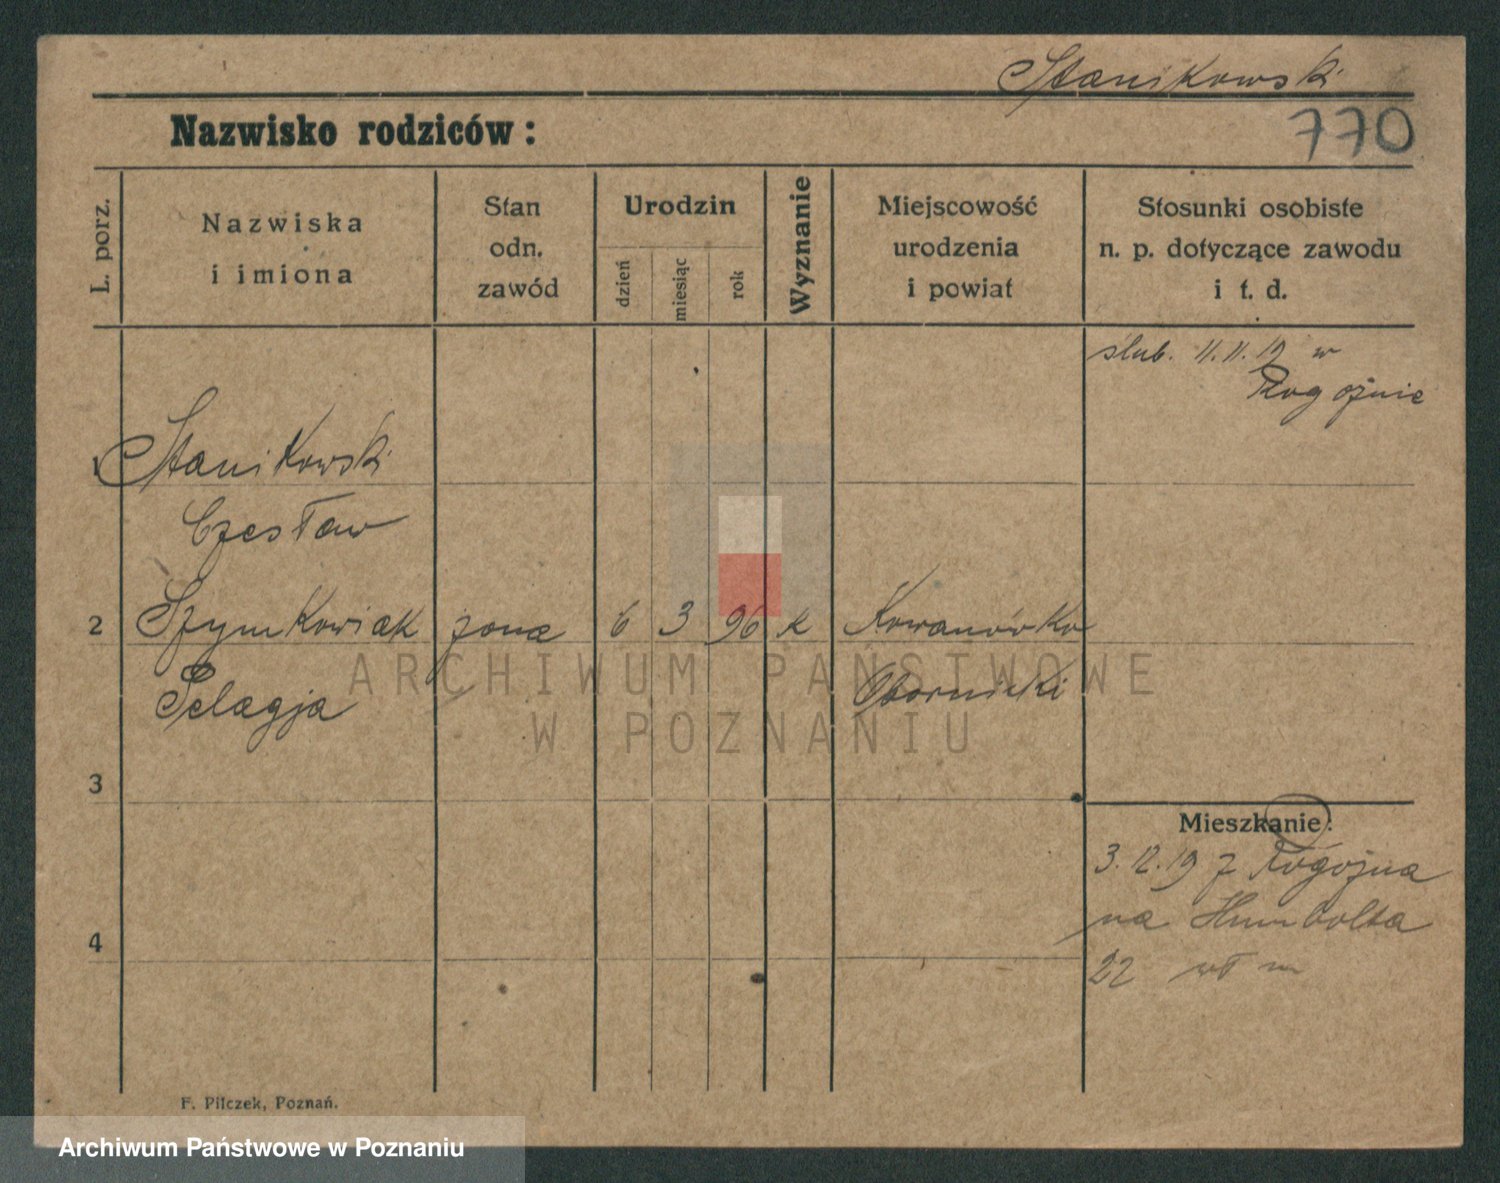 Stanikowski
770
Nazwisko rodziców :
L. porz.
Nazwiska
i imiona
Stan
odn.
zawód
Urodzin
dzień
miesiąc
rok
Wyznanie
Miejscowość
urodzenia
i powiat
Stosunki osobiste
n. p. dotyczące zawodu
i t. d.
ślub. 11.11.19 w
Rogoźnie
1 Stanikowski
Czesław
2 Szymkowiak żona 6 3 96 k Kowanówko
Pelagja Obornicki
3
4
Mieszkanie:
3.12.19 z Rogoźna
na Humbolta
22 wł m
F. Pilczek, Poznań.
ARCHIWUM PAŃSTWOWE
W POZNANIU
Archiwum Państwowe w Poznaniu